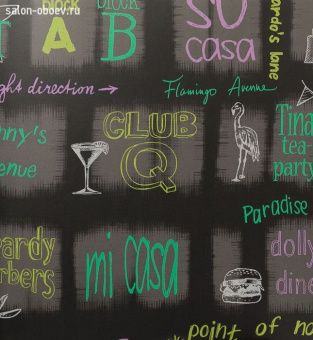 salon-oboev.ru
block
A
block
B
su
casa
ardo's lane
ght direction →
Flamingo Avenue
nny's
enue
CLUB
Q
Tina
tea-
party
Paradise
ardy
rbers
mi casa
dolly
dine
point of no